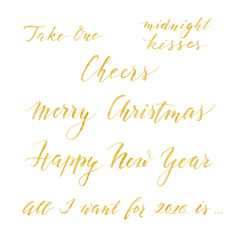 Take One
midnight
kisses
Cheers
Merry Christmas
Happy New Year
All I want for 2020 is ...